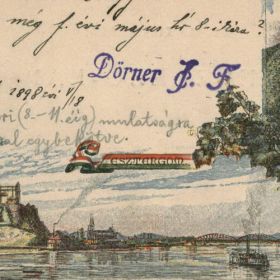 még f. évi május hó 8-ikára?
Dörner J. F.
1898 évi V/18
(8-11.éig) mulatságra
egybekötve.
ESZTERGOM